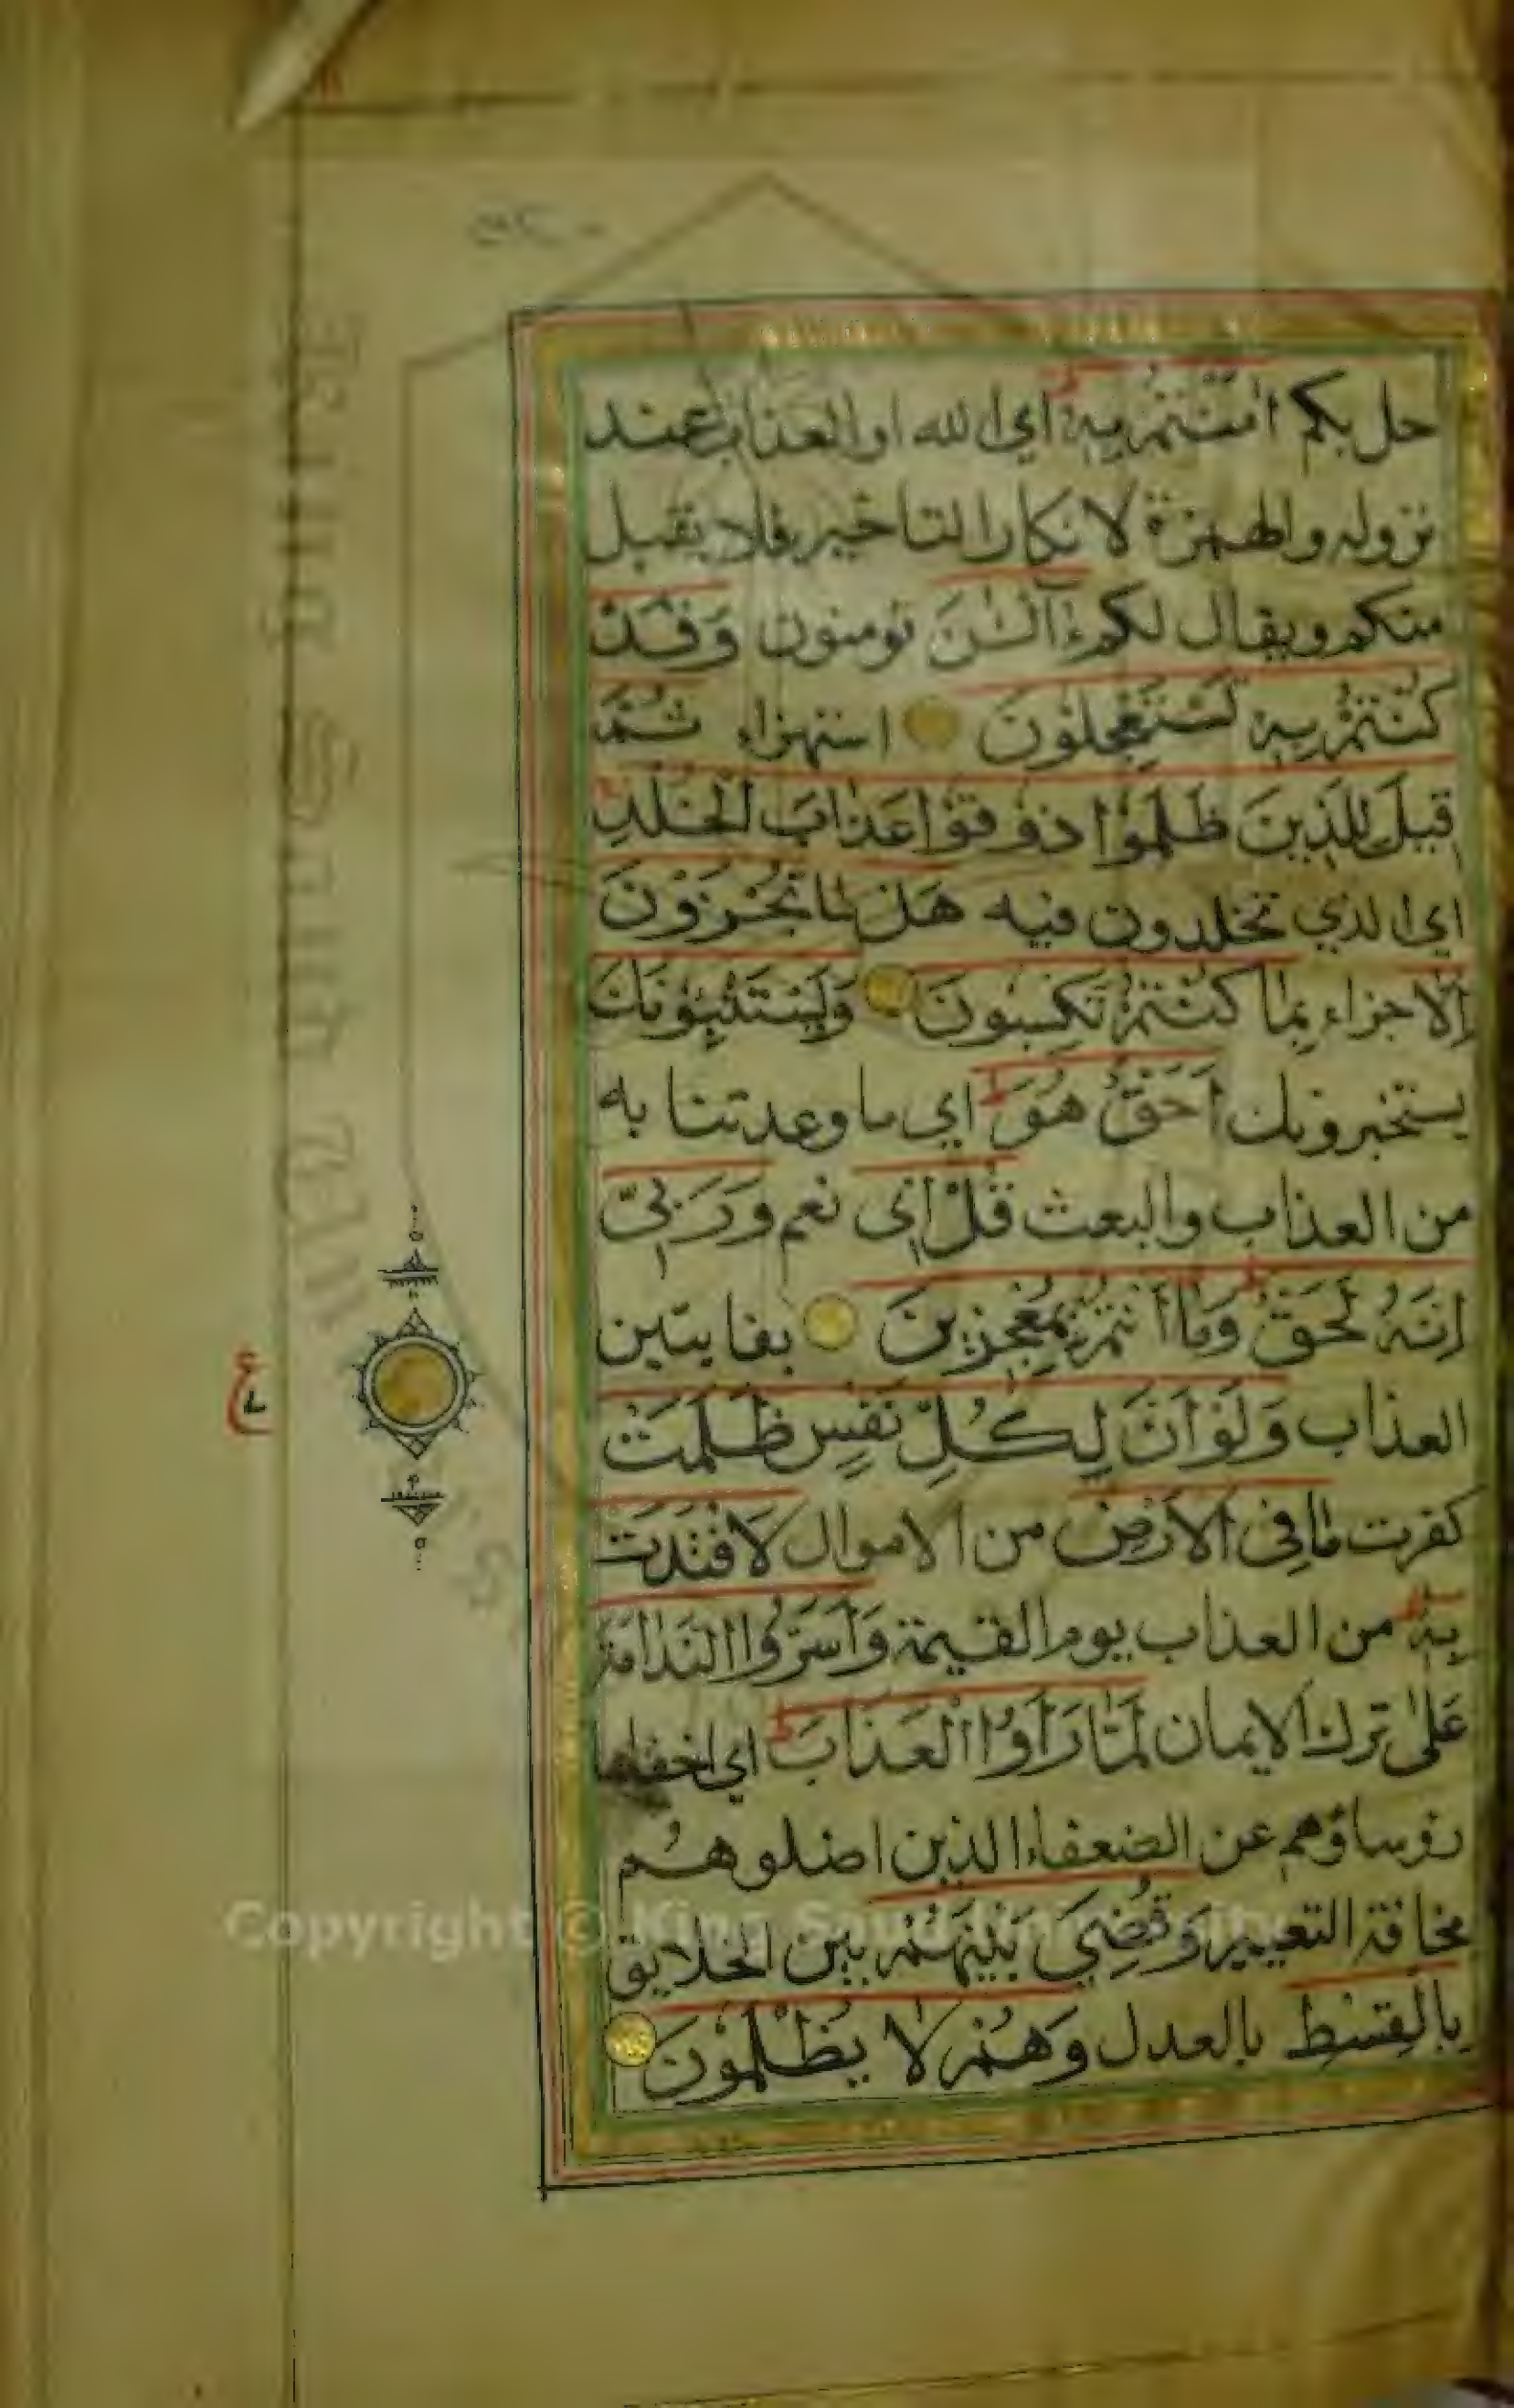 حل بكم اٰمَنْتُمْ بِهٖ اي الله او العذاب عند
نزوله والهمزة لانكار التاخير فلا يقبل
منكم ويقال لكم ءَآلْـٰٔنَ تومنون وَقَدْ
كُنْتُمْ بِهٖ تَسْتَعْجِلُوْنَ استهزاء ثُمَّ
قِيْلَ لِلَّذِيْنَ ظَلَمُوْا ذُوْقُوْا عَذَابَ الْخُلْدِ
اي الذي تخلدون فيه هَلْ مَا تُجْزَوْنَ
اِلَّا جزاء بِمَا كُنْتُمْ تَكْسِبُوْنَ وَيَسْتَنْبِئُوْنَكَ
يستخبرونك اَحَقٌّ هُوَ اي ما وعدتنا به
من العذاب والبعث قُلْ اِيْ نعم وَرَبِّيْ
اِنَّهُ لَحَقٌّ وَمَا اَنْتُمْ بِمُعْجِزِيْنَ بفايتين
العذاب وَلَوْ اَنَّ لِكُلِّ نَفْسٍ ظَلَمَتْ
كفرت مَا فِي الْاَرْضِ من الاموال لَافْتَدَتْ
بِهٖ من العذاب يوم القيمة وَاَسَرُّوا النَّدَامَةَ
عَلٰى ترك الايمان لَمَّا رَاَوُا الْعَذَابَ اي اخفاها
رؤساؤهم عن الضعفاء الذين اضلوهُم
مخافة التعيير وَقُضِيَ بَيْنَهُمْ بين الخلايق
بِالْقِسْطِ بالعدل وَهُمْ لَا يُظْلَمُوْنَ
ع
King Saud University
Copyright © King Saud University